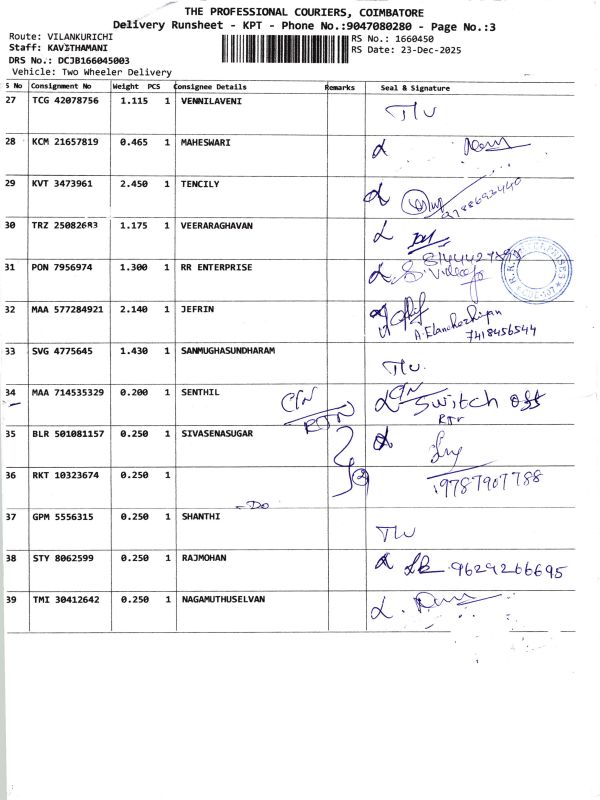 THE PROFESSIONAL COURIERS, COIMBATORE
Delivery Runsheet - KPT - Phone No.:9047080280 - Page No.:3
Route: VILANKURICHI
RS No.: 1660450
Staff: KAVITHAMANI
RS Date: 23-Dec-2025
DRS No.: DCJB166045003
Vehicle: Two Wheeler Delivery
S No Consignment No Weight PCS Consignee Details Remarks Seal & Signature
27 TCG 42078756 1.115 1 VENNILAVENI
28 KCM 21657819 0.465 1 MAHESWARI
29 KVT 3473961 2.450 1 TENCILY
30 TRZ 25082683 1.175 1 VEERARAGHAVAN
31 PON 7956974 1.300 1 RR ENTERPRISE
32 MAA 577284921 2.140 1 JEFRIN
A.Elanchezhiyan
7418456544
33 SVG 4775645 1.430 1 SANMUGHASUNDHARAM
34 MAA 714535329 0.200 1 SENTHIL C/N RTN C/N Switch off
RTN
35 BLR 501081157 0.250 1 SIVASENASUGAR
36 RKT 10323674 0.250 1 -Do 2 19787907788
37 GPM 5556315 0.250 1 SHANTHI
38 STY 8062599 0.250 1 RAJMOHAN 9629266695
39 TMI 30412642 0.250 1 NAGAMUTHUSELVAN